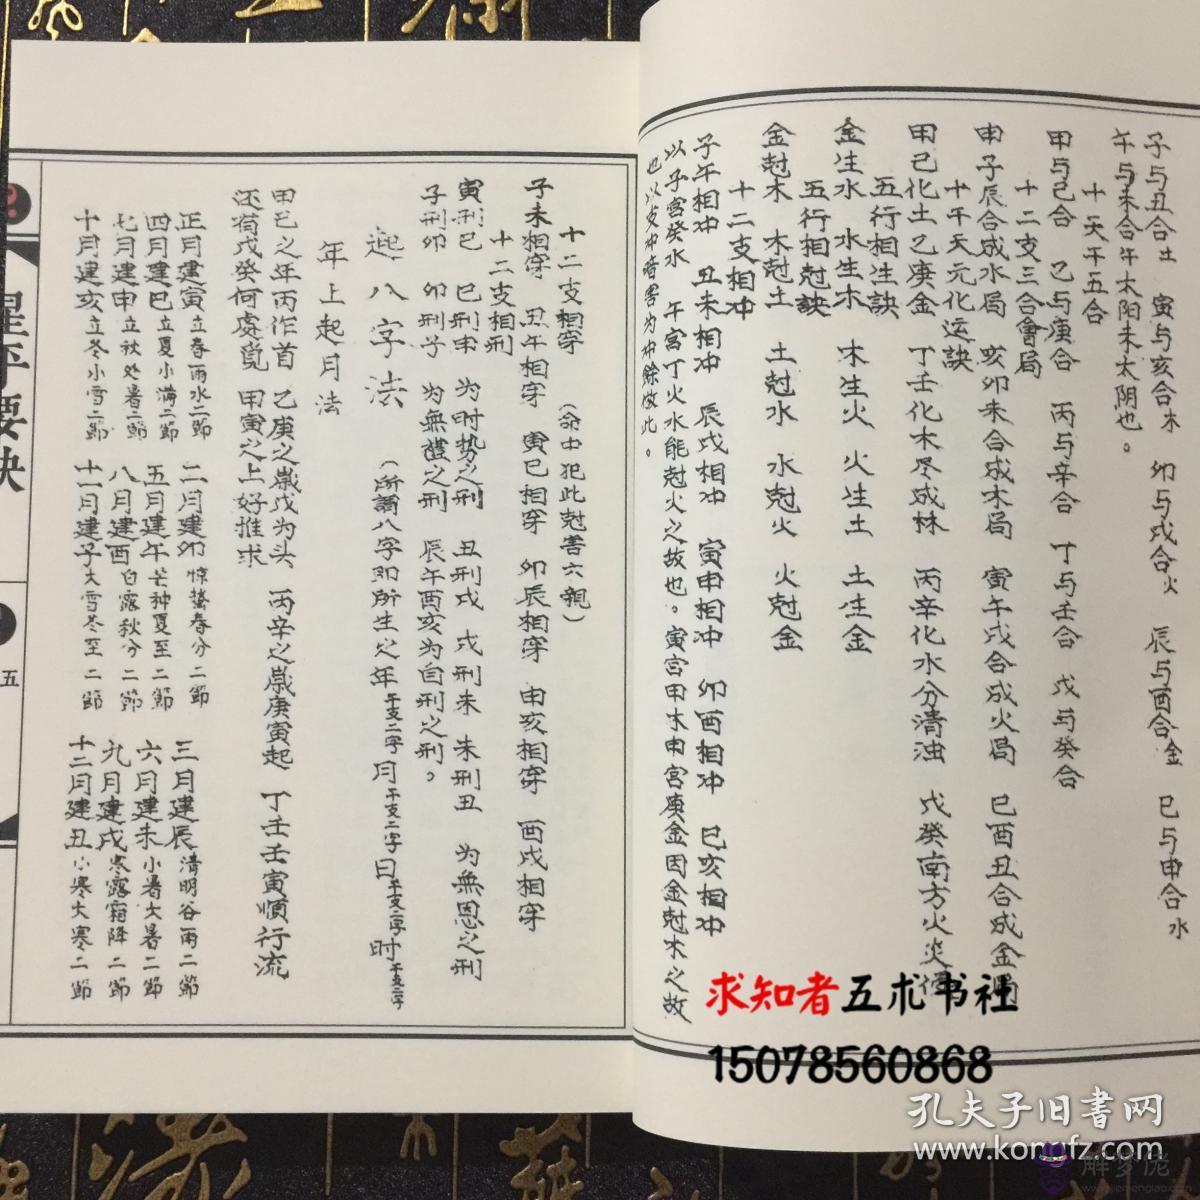 子与丑合土 寅与亥合木 卯与戌合火 辰与酉合金 巳与申合水
午与未合午太阳未太阴也。
十天干五合
甲与己合 乙与庚合 丙与辛合 丁与壬合 戊与癸合
十二支三合會局
申子辰合成水局 亥卯未合成木局 寅午戌合成火局 巳酉丑合成金局
十干天元化运訣
甲己化土乙庚金 丁壬化木尽成林 丙辛化水分清浊 戊癸南方火炎
五行相生訣
金生水 水生木 木生火 火生土 土生金
五行相尅訣
金尅木 木尅土 土尅水 水尅火 火尅金
十二支相冲
子午相冲 丑未相冲 辰戌相冲 寅申相冲 卯酉相冲 巳亥相冲
以子宫癸水 午宫丁火水能尅火之故也。寅宫甲木申宫庚金因金尅木之故
也以支冲暗害为冲餘倣此。
十二支相穿 (命中犯此尅害六親)
子未相穿 丑午相穿 寅巳相穿 卯辰相穿 申亥相穿 酉戌相穿
十二支相刑
寅刑巳 巳刑申 为时势之刑 丑刑戌 戌刑未 未刑丑 为無恩之刑
子刑卯 卯刑子 为無禮之刑 辰午酉亥为自刑之刑。
起八字法 (所謂八字即所生之年干支二字月干支二字日干支二字时干支二字
年上起月法
甲己之年丙作首 乙庚之歲戊为头 丙辛之歲庚寅起 丁壬壬寅順行流
还有戊癸何處覓 甲寅之上好推求
正月建寅立春雨水二節 二月建卯惊蟄春分二節 三月建辰清明谷雨二節
四月建巳立夏小满二節 五月建午芒种夏至二節 六月建未小暑大暑二節
七月建申立秋处暑二節 八月建酉白露秋分二節 九月建戌寒露霜降二節
十月建亥立冬小雪二節 十一月建子大雪冬至二節 十二月建丑小寒大寒二節
星平要訣
五
求知者五术书社
15078560868
孔夫子旧书网
www.kongfz.com
解梦佬